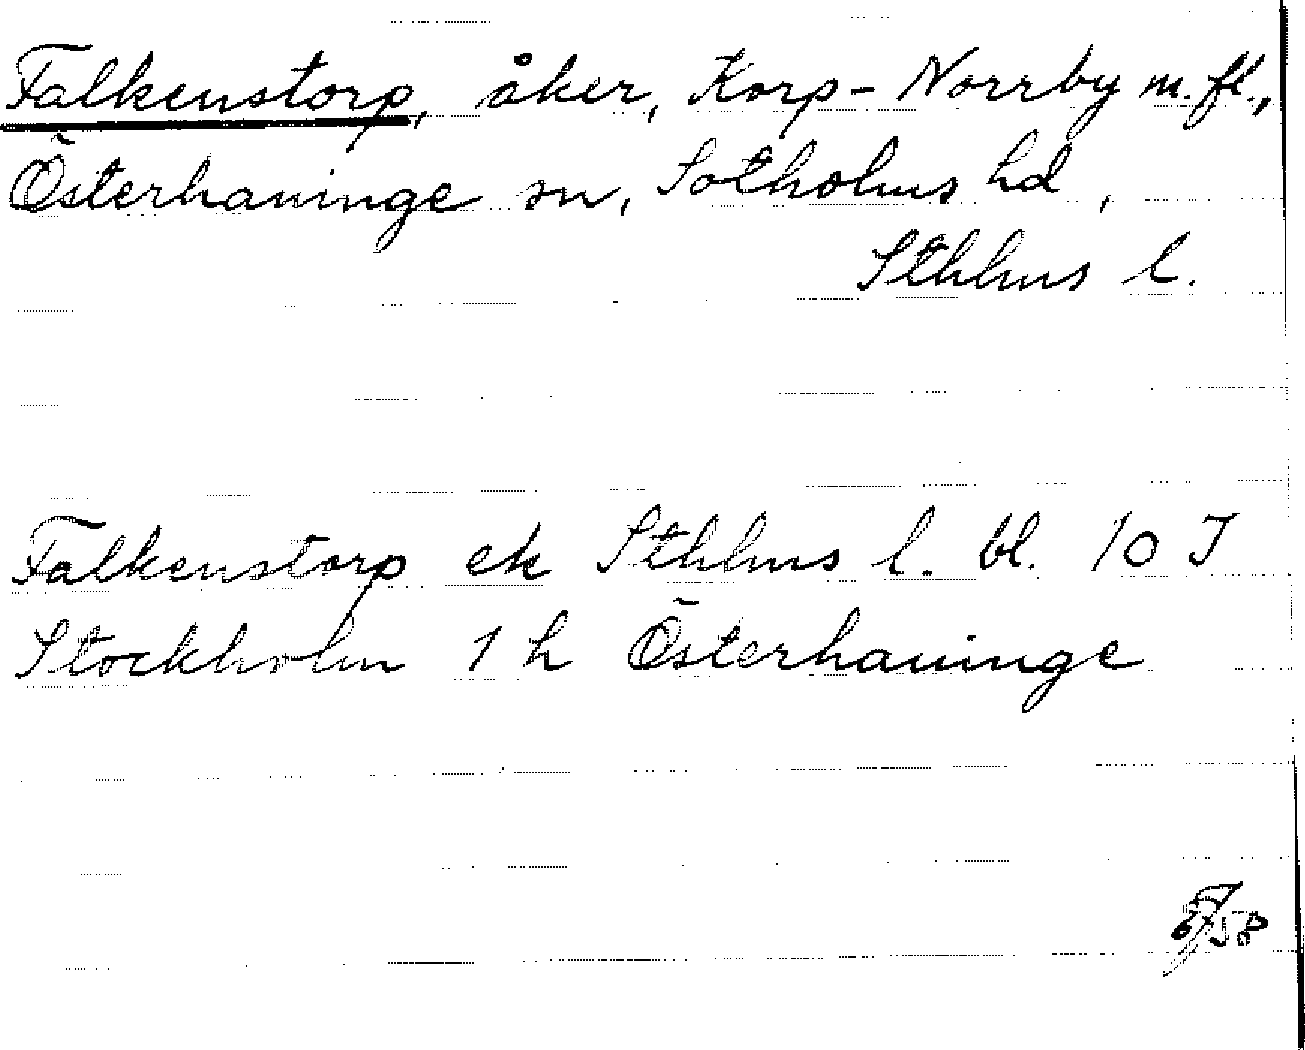 Falkenstorp, åker, Korp-Norrby m.fl.,
Österhaninge sn, Sotholms hd,
Sthlms l.
Falkenstorp ek Sthlms l. bl. 10 J
Stockholm 1 h Österhaninge